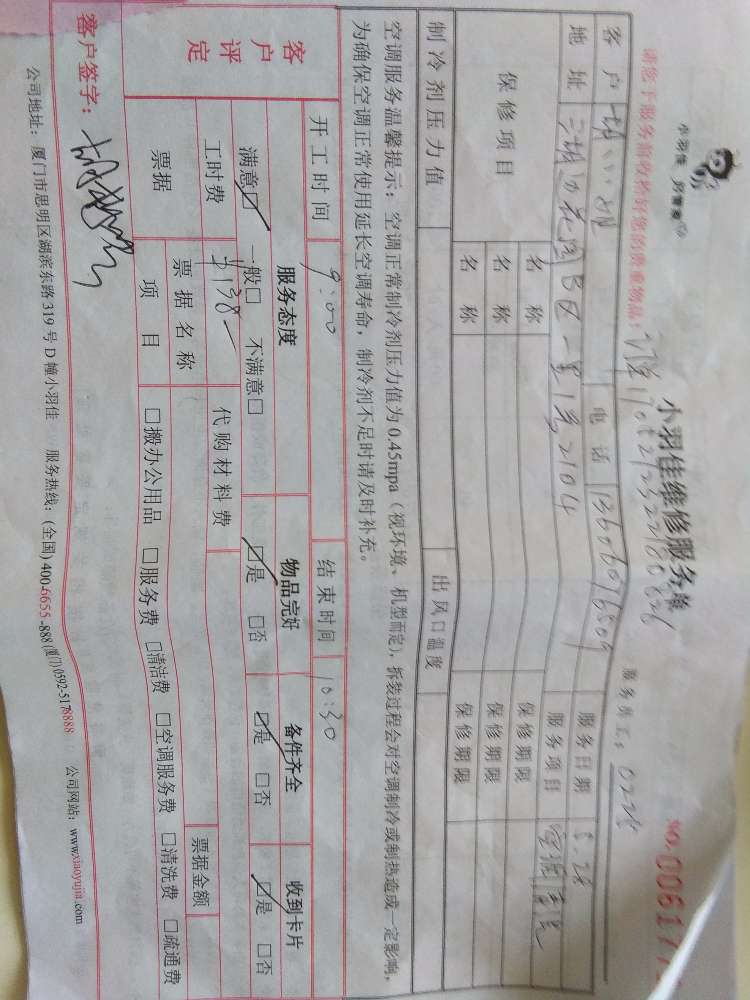 小羽佳 好管家
小羽佳维修服务单
服务员工：0228
NO.006177
请您于服务前收拾好您的贵重物品！
客户 胡小姐 电话 13606016509 服务日期 5.28
地址 二胡边花园B区一里1号2104 服务项目 空调清洗
保修项目 名称 保修期限
名称 保修期限
名称 保修期限
制冷剂压力值 出风口温度
空调服务温馨提示：空调正常制冷剂压力值为0.45mpa（视环境、机型而定），拆装过程会对空调制冷或制热造成一定影响，
为确保空调正常使用延长空调寿命，制冷剂不足时请及时补充。
开工时间 9:00 结束时间 10:30
客户评定 服务态度 物品完好 备件齐全 收到卡片
满意☑ 一般□ 不满意□ ☑是 □否 ☑是 □否 ☑是 □否
工时费 ¥138- 代购材料费
票据 票据名称 票据金额
项目 □搬办公用品 □服务费 □清洁费 □空调服务费 □清洗费 □疏通费
客户签字：
公司地址：厦门市思明区湖滨东路319号D幢小羽佳 服务热线：(全国)400-6655-888(厦门)0592-5178888 公司网站：www.xiaoyujia.com